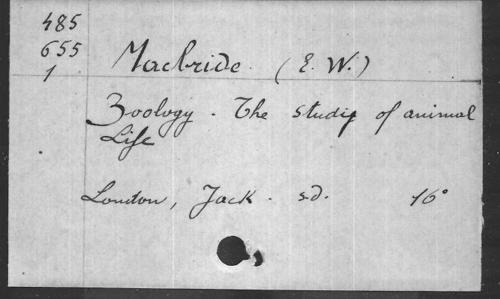 485
655
1
Macbride (E. W.)
Zoology. The study of animal
Life
London, Jack. s.d. 16°